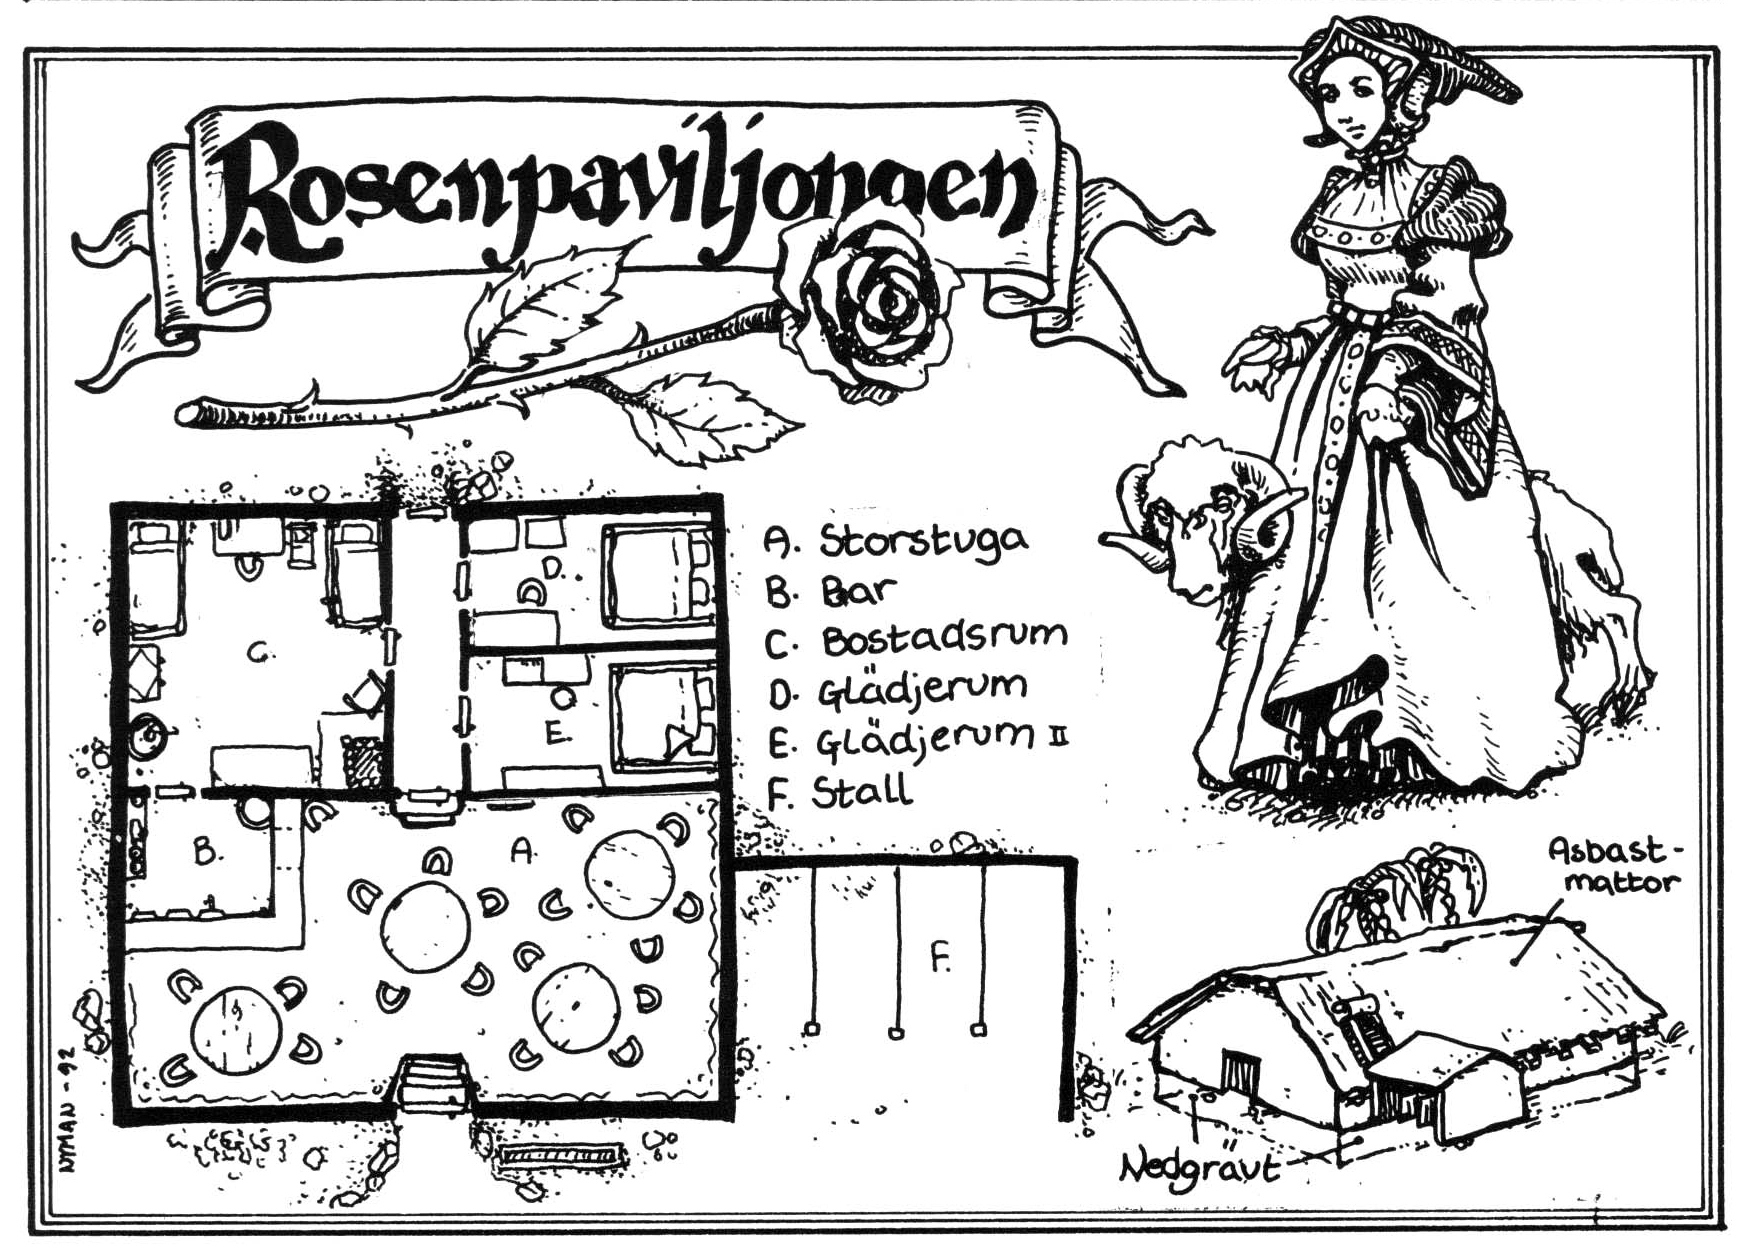 Rosenpaviljongen
A. Storstuga
B. Bar
C. Bostadsrum
D. Glädjerum
E. Glädjerum II
F. Stall
D.
C.
E.
B.
A.
F.
Asbast-
mattor
Nedgrävt
NYMAN-92